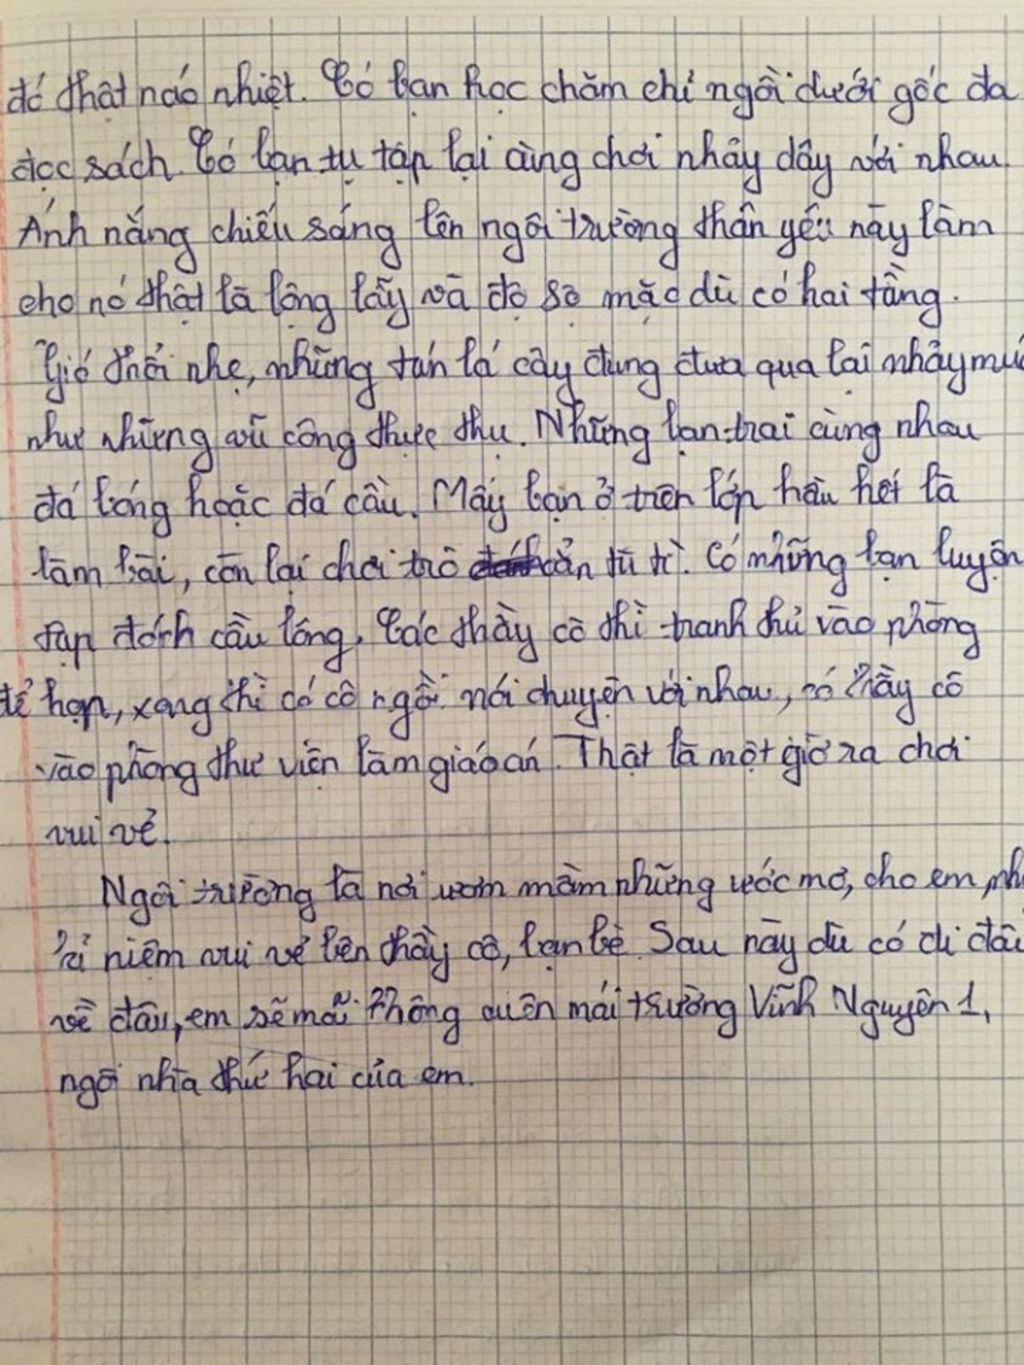 đó thật náo nhiệt. Có bạn học chăm chỉ ngồi dưới gốc đa
đọc sách. Có bạn tụ tập lại cùng chơi nhảy dây với nhau.
Ánh nắng chiếu sáng lên ngôi trường thân yêu này làm
cho nó thật là lộng lẫy và đồ sộ mặc dù có hai tầng.
Gió thổi nhẹ, những tán lá cây đung đưa qua lại nhảy
như những vũ công thực thụ. Những bạn trai cùng nhau
đá bóng hoặc đá cầu. Mấy bạn ở trên lớp hầu hết là
làm bài, còn lại chơi trò oẳn tù tì. Có những bạn luyện
tập đánh cầu lông. Các thầy cô thì tranh thủ vào phòng
để họp, xong thì có cô ngồi nói chuyện với nhau, có thầy cô
vào phòng thư viện làm giáo án. Thật là một giờ ra chơi
vui vẻ.
Ngôi trường là nơi ươm mầm những ước mơ, cho em
niềm vui vẻ bên thầy cô, bạn bè. Sau này dù có đi đâu
về đâu, em sẽ mãi không quên mái trường Vĩnh Nguyên 1,
ngôi nhà thứ hai của em.